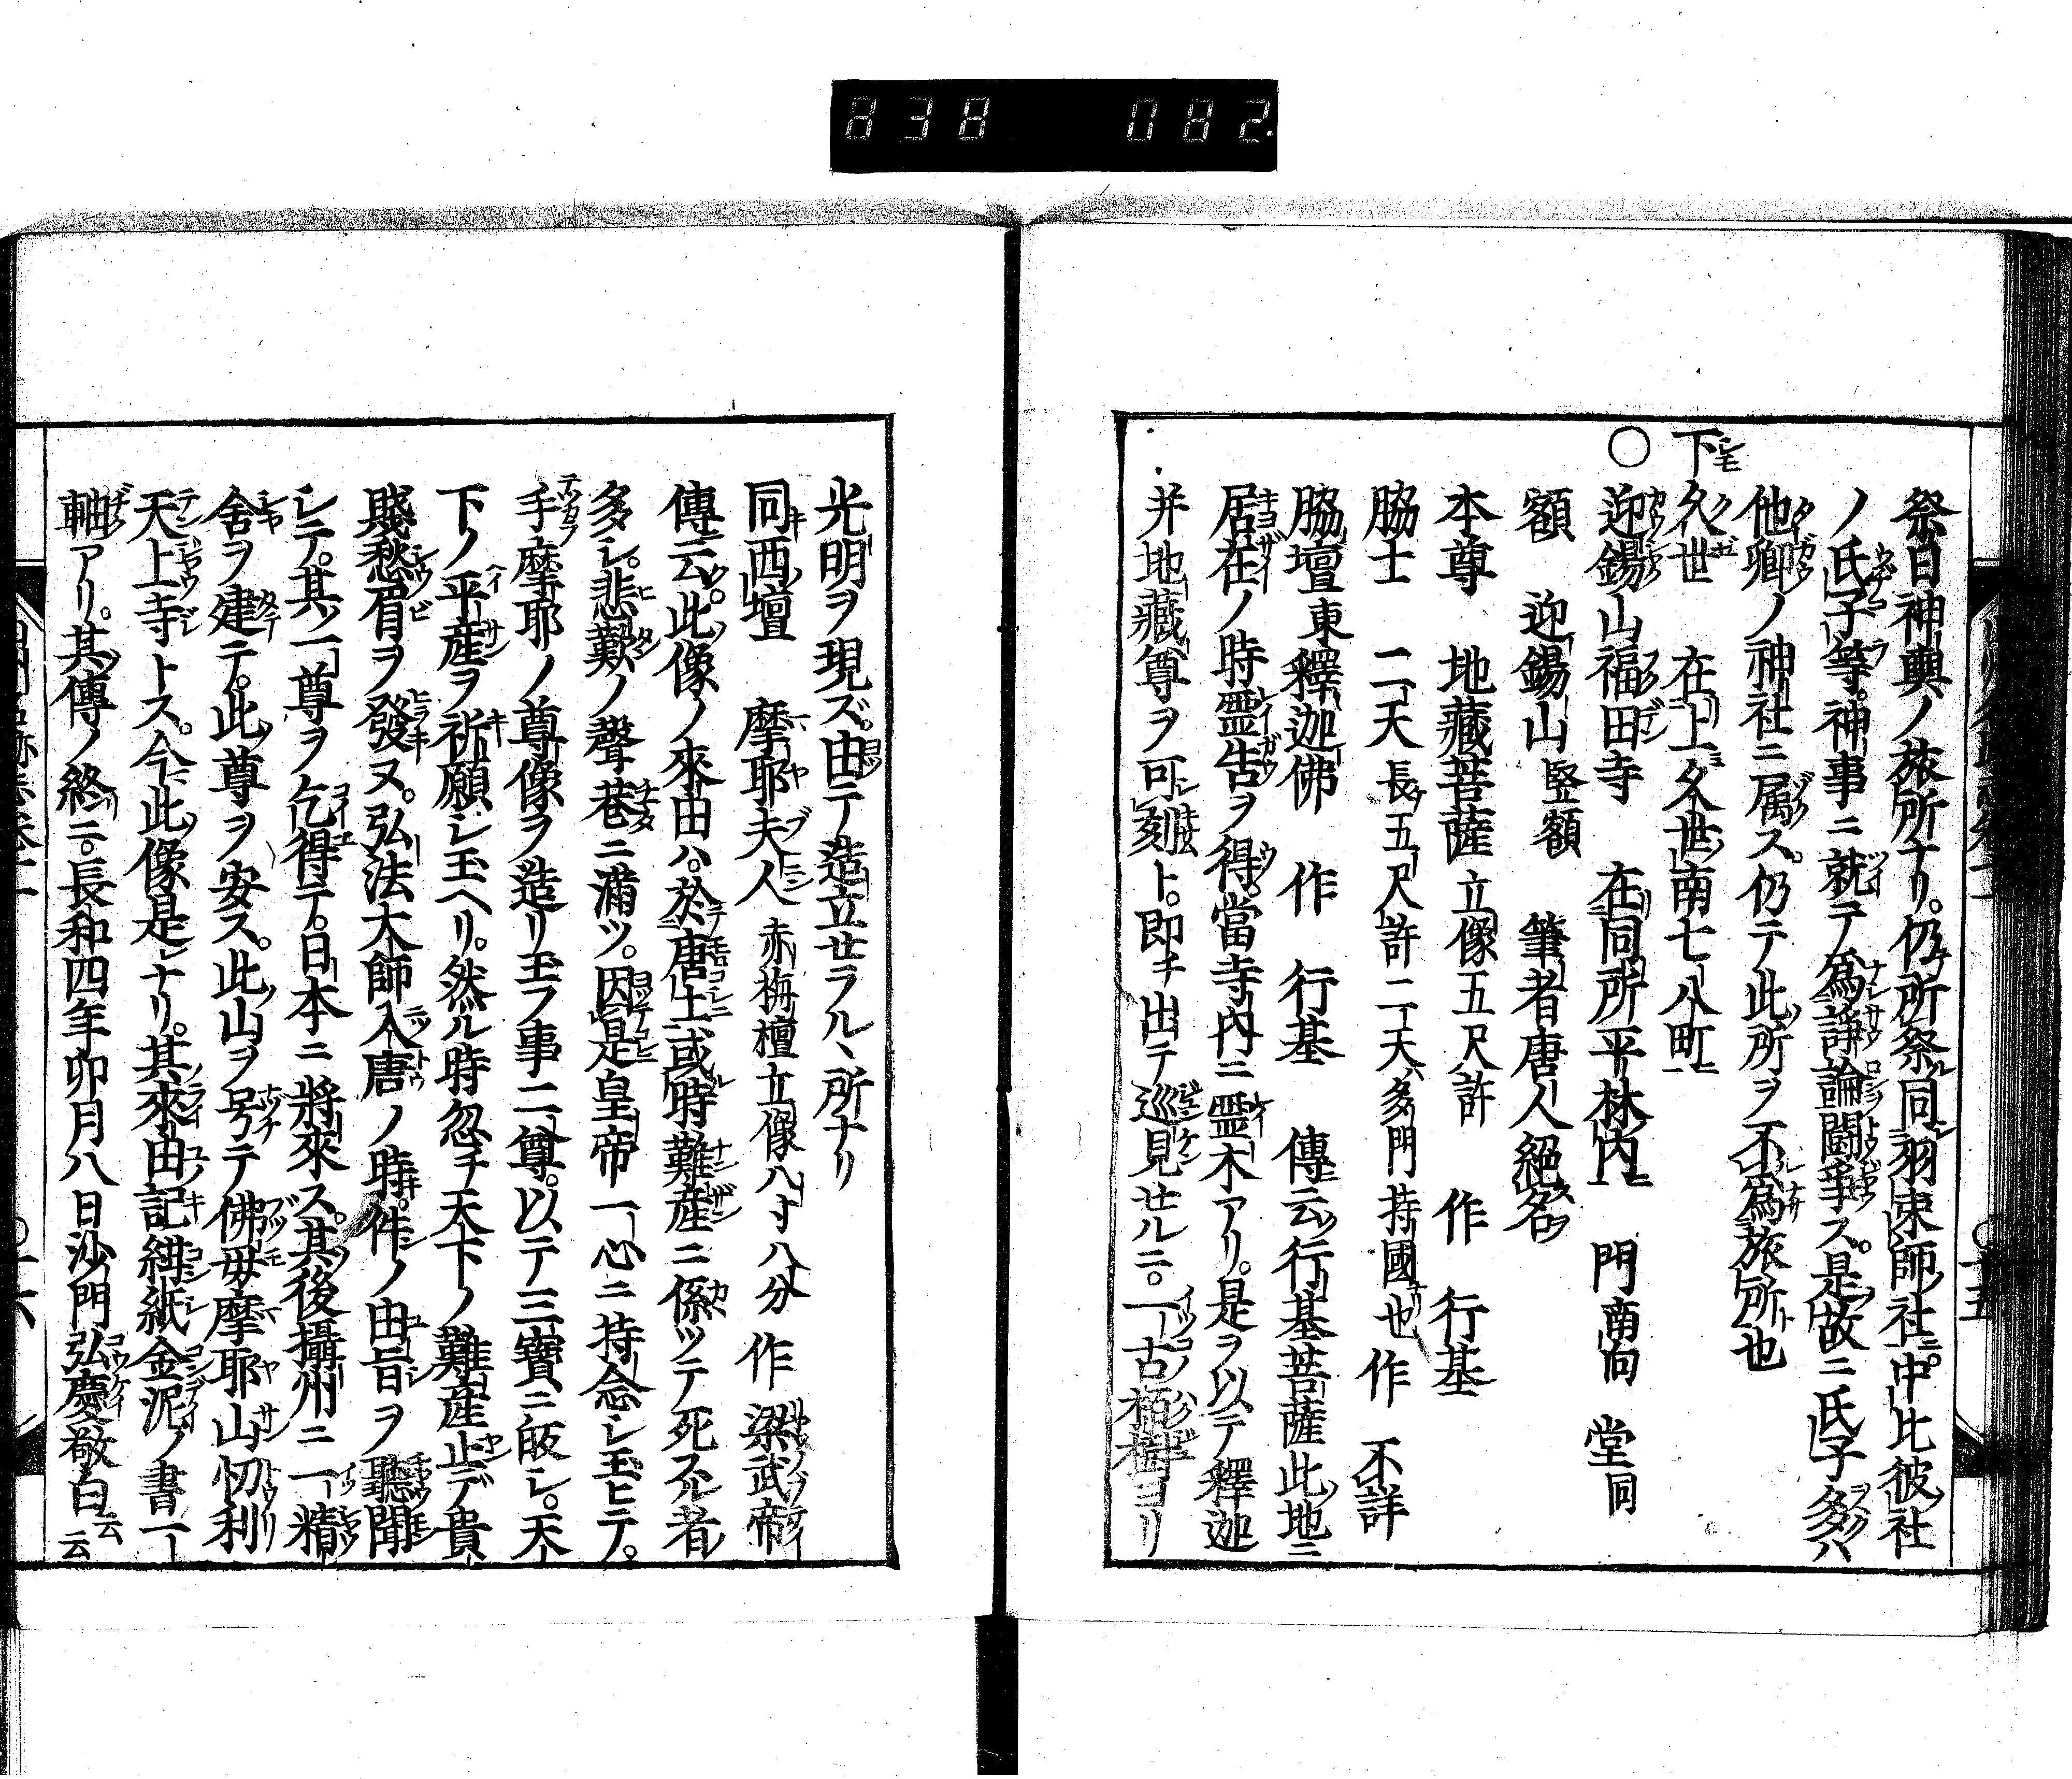 838 082
祭日神輿ノ旅所ナリ。仍所祭同羽束師社ニ。中比彼社
ノ氏子等。神事ニ就テ為諍論闘爭ス。是故ニ氏子多ハ
他郷ノ神社ニ属ス。仍テ此所ヲ不為旅所也
下久世 在上久世南七八町
〇迎錫山福田寺 在同所平林内 門南向 堂同
額 迎錫山 竪額 筆者唐人絕名
本尊 地藏菩薩 立像五尺許 作 行基
脇士 二天 長五尺許二天ハ多門持國也 作 不詳
脇壇 東 釋迦佛 作 行基 傳云行基菩薩此地ニ
居在ノ時霊告ヲ得。當寺内ニ霊木アリ。是ヲ以テ釋迦
并地藏尊ヲ可刻ト。即チ出テ巡見セルニ。一古栢樹ヨリ
光明ヲ現ズ。由テ造立セラルヽ所ナリ
同西壇 摩耶夫人 赤栴檀立像八寸八分 作 梁武帝
傳云。此像ノ來由ハ。於唐土或時難産ニ係ツテ死スル者
多シ。悲歎ノ聲巷ニ滿ツ。因是皇帝一心ニ持念シ玉ヒテ。
手摩耶ノ尊像ヲ造リ玉フ事二尊。以テ三寶ニ皈シ。天
下ノ平産ヲ祈願シ玉ヘリ。然ル時忽チ天下ノ難産止デ貴
賤愁眉ヲ發ヌ。弘法大師入唐ノ時。件ノ由旨ヲ聽聞
シテ。其ノ一尊ヲ乞得テ。日本ニ將來ス。其後攝州ニ一精
舍ヲ建テ。此尊ヲ安ス。此山ヲ号テ佛母摩耶山忉利
天上寺トス。今此像是ナリ。其來由記紺紙金泥ノ書一
軸アリ。其傳ノ終ニ。長和四年卯月八日沙門弘慶敬白云云